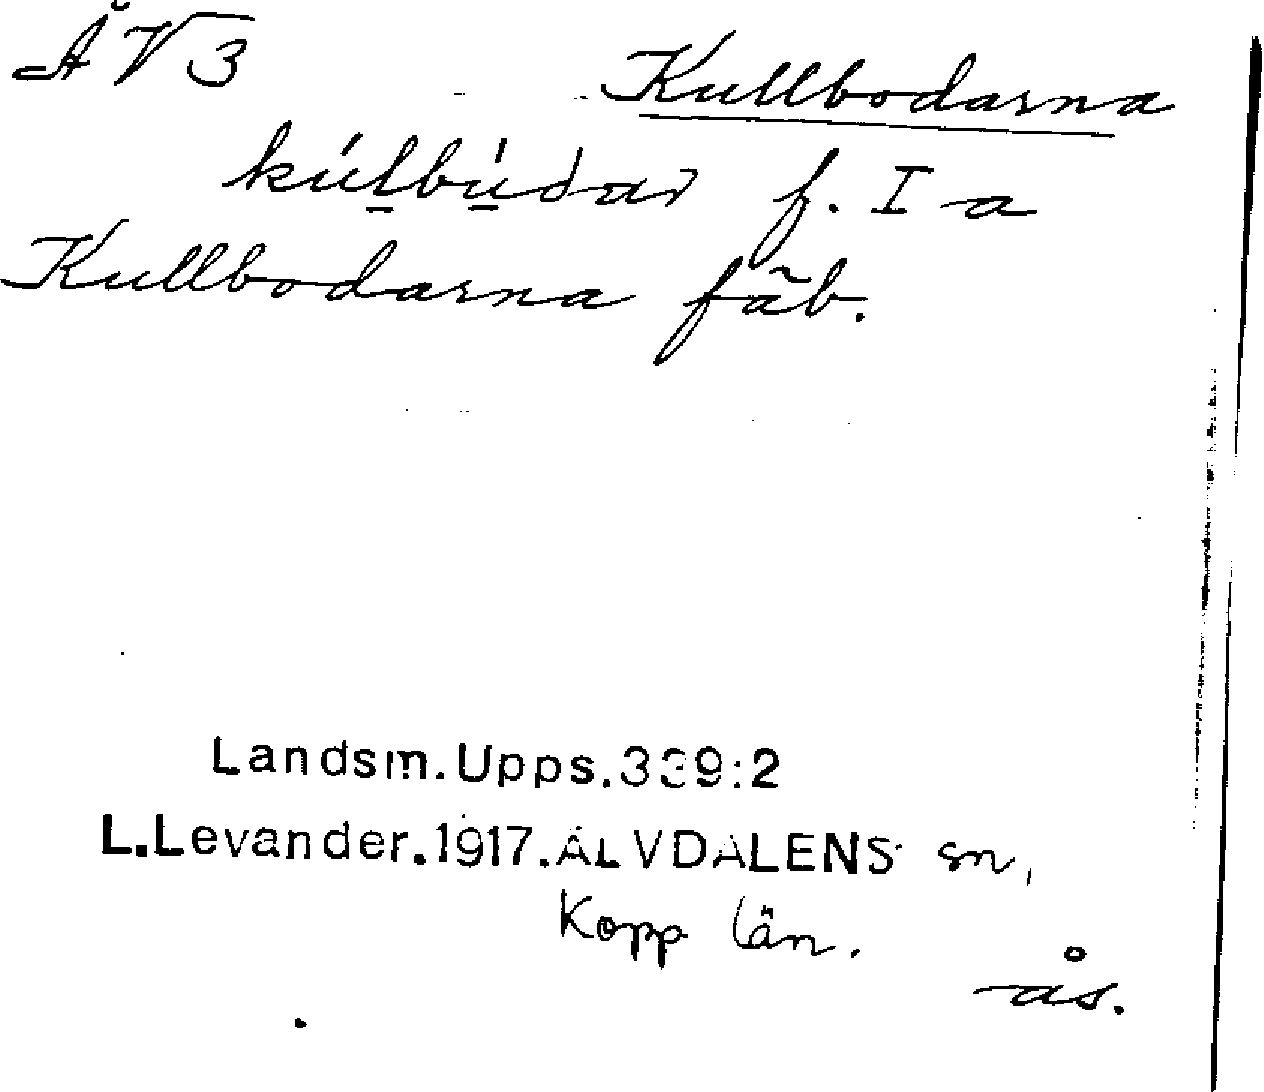 Å V 3
Kullbodarna
kúl̠bú̠dar f. I a
Kullbodarna fäb.
Landsm.Upps.339:2
L.Levander.1917.ÄLVDALENS sn,
Kopp län.
ås.